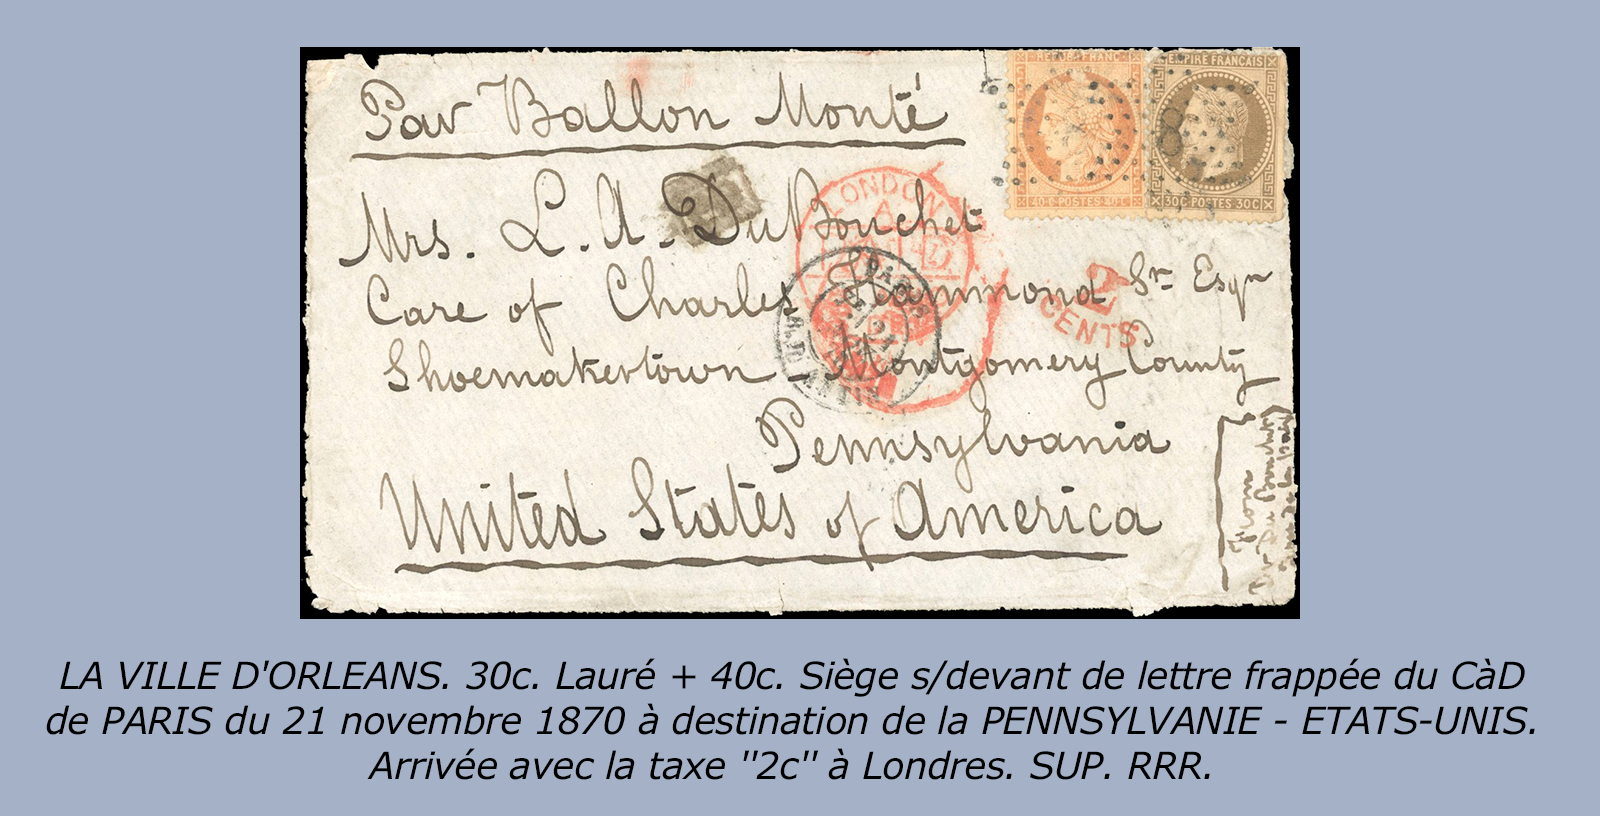 Par Ballon Monté
REPUB. FRANC.
40 C. POSTES 40 C.
EMPIRE FRANÇAIS
30C POSTES 30C
8
LONDON
A
PARIS
2
CENTS
Mrs. L. A. DuBouchet
Care of Charles Hammond Sr Esqr
Shoemakertown - Montgomery County
Pennsylvania
United States of America
From
LA VILLE D'ORLEANS. 30c. Lauré + 40c. Siège s/devant de lettre frappée du CàD
de PARIS du 21 novembre 1870 à destination de la PENNSYLVANIE - ETATS-UNIS.
Arrivée avec la taxe "2c" à Londres. SUP. RRR.